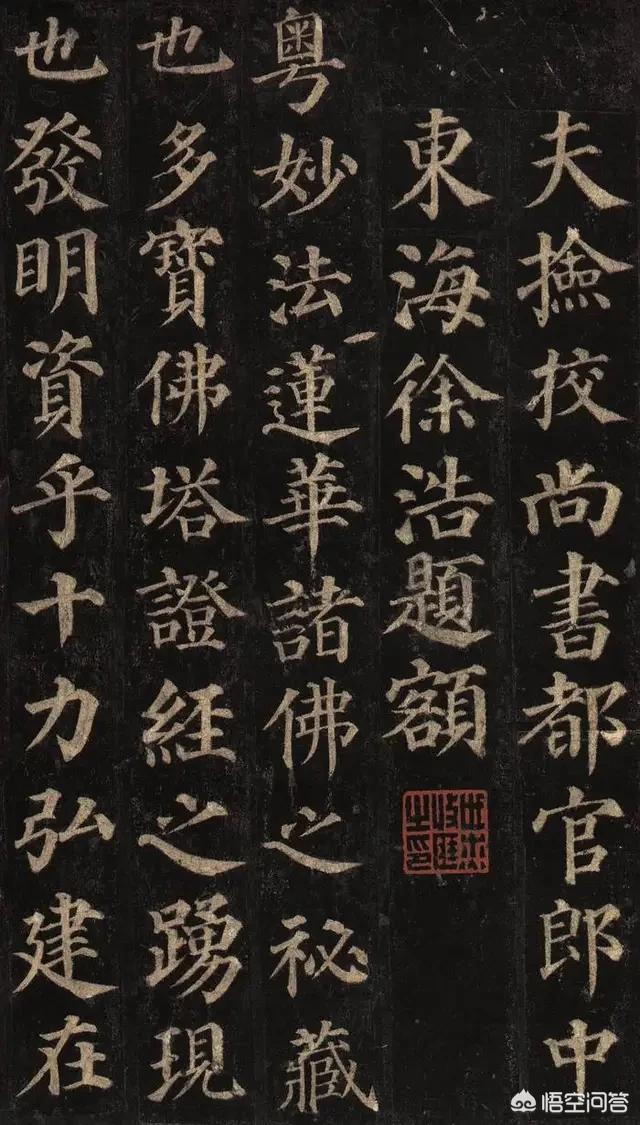 夫撿挍尚書都官郎中
東海徐浩題額
粤妙法蓮華諸佛之祕藏
也多寶佛塔證經之踴現
也發明資乎十力弘建在
悟空问答